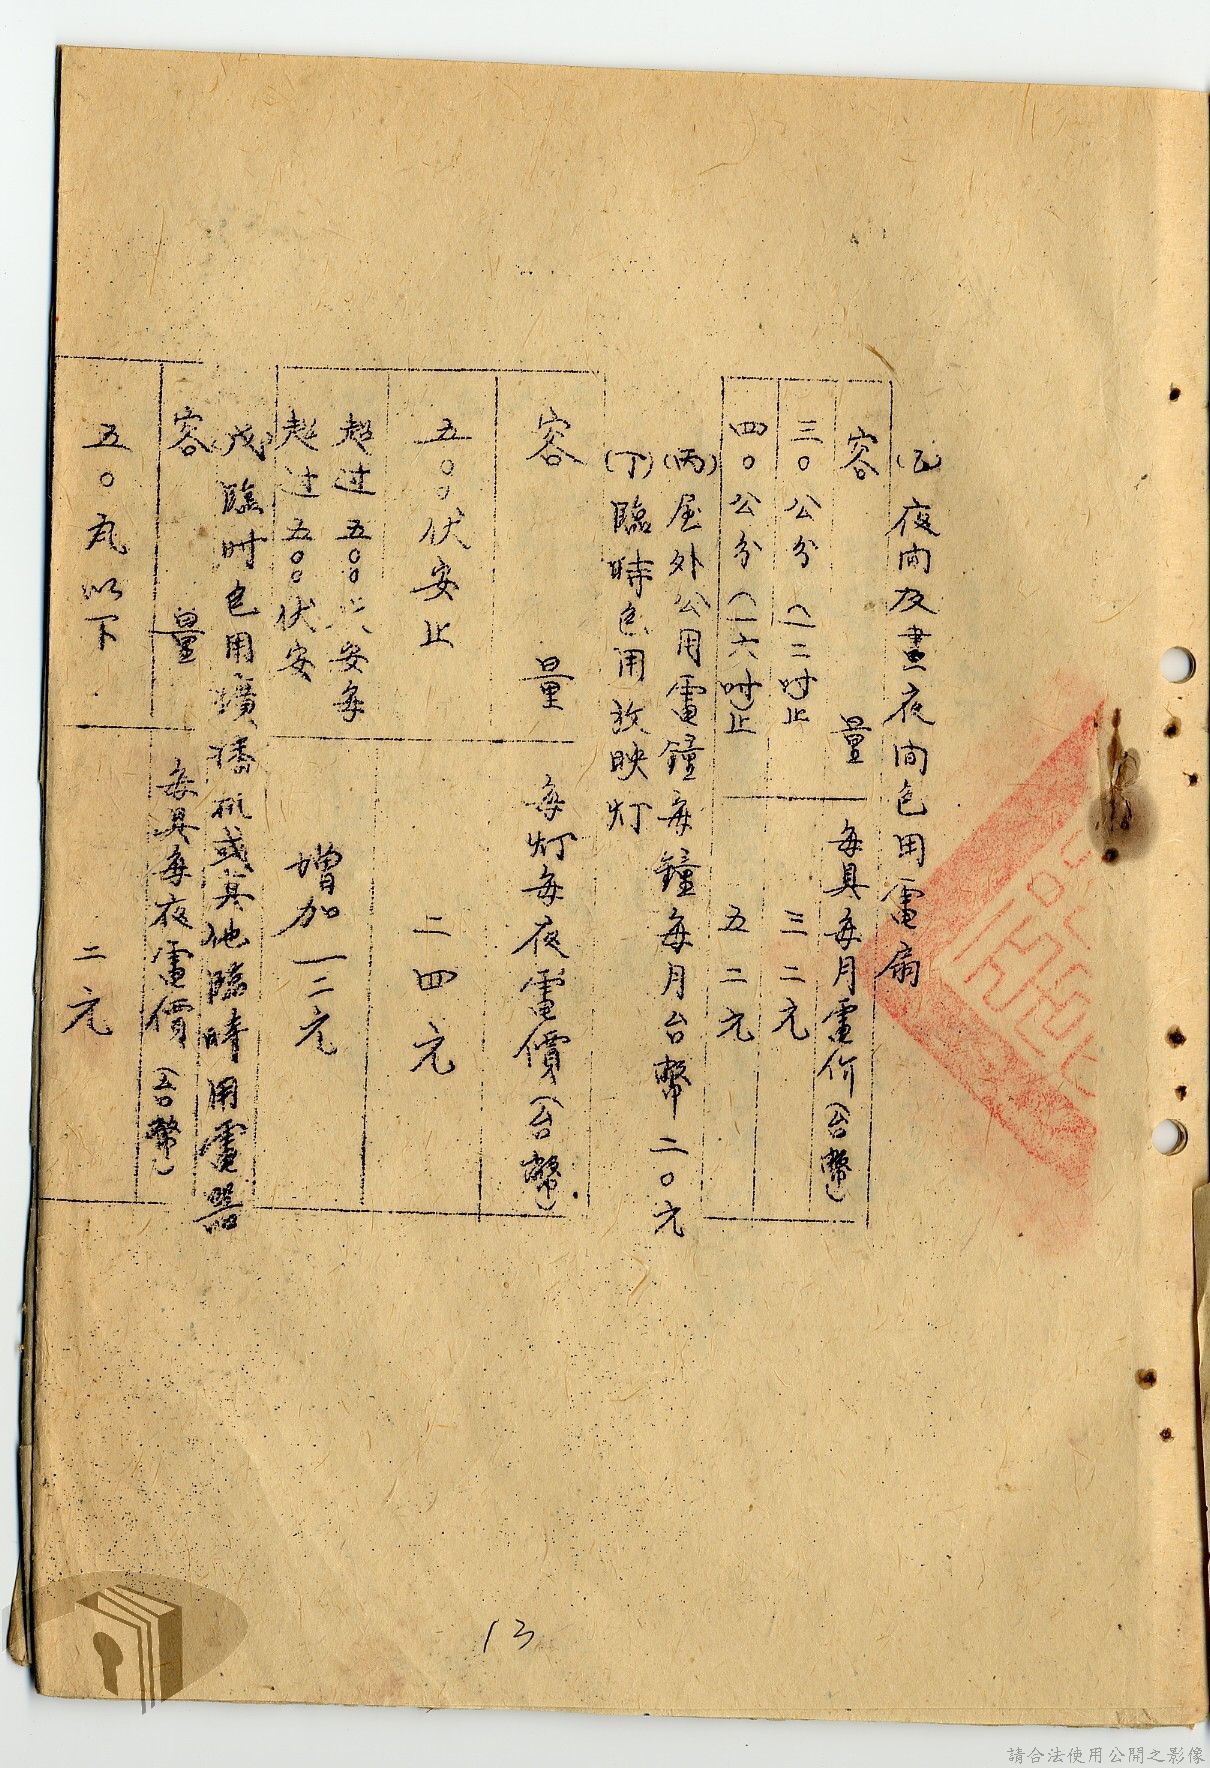 (乙)夜间及晝夜间包用電扇
容 量 每具每月電价(台幣)
三〇公分(一二吋止 三二元
四〇公分(一六吋止 五二元
(丙)屋外公用電鐘每鐘每月台幣二〇元
(丁)臨時包用放映灯
容 量 每灯每夜電價(台幣)
五〇〇伏安止 二四元
超过五〇〇伏安每
超过五〇〇伏安 增加一二元
戊 臨时包用擴播机或其他臨時用電器
容 量 每具每夜電價(台幣)
五〇瓦以下 二元
13
請合法使用公開之影像